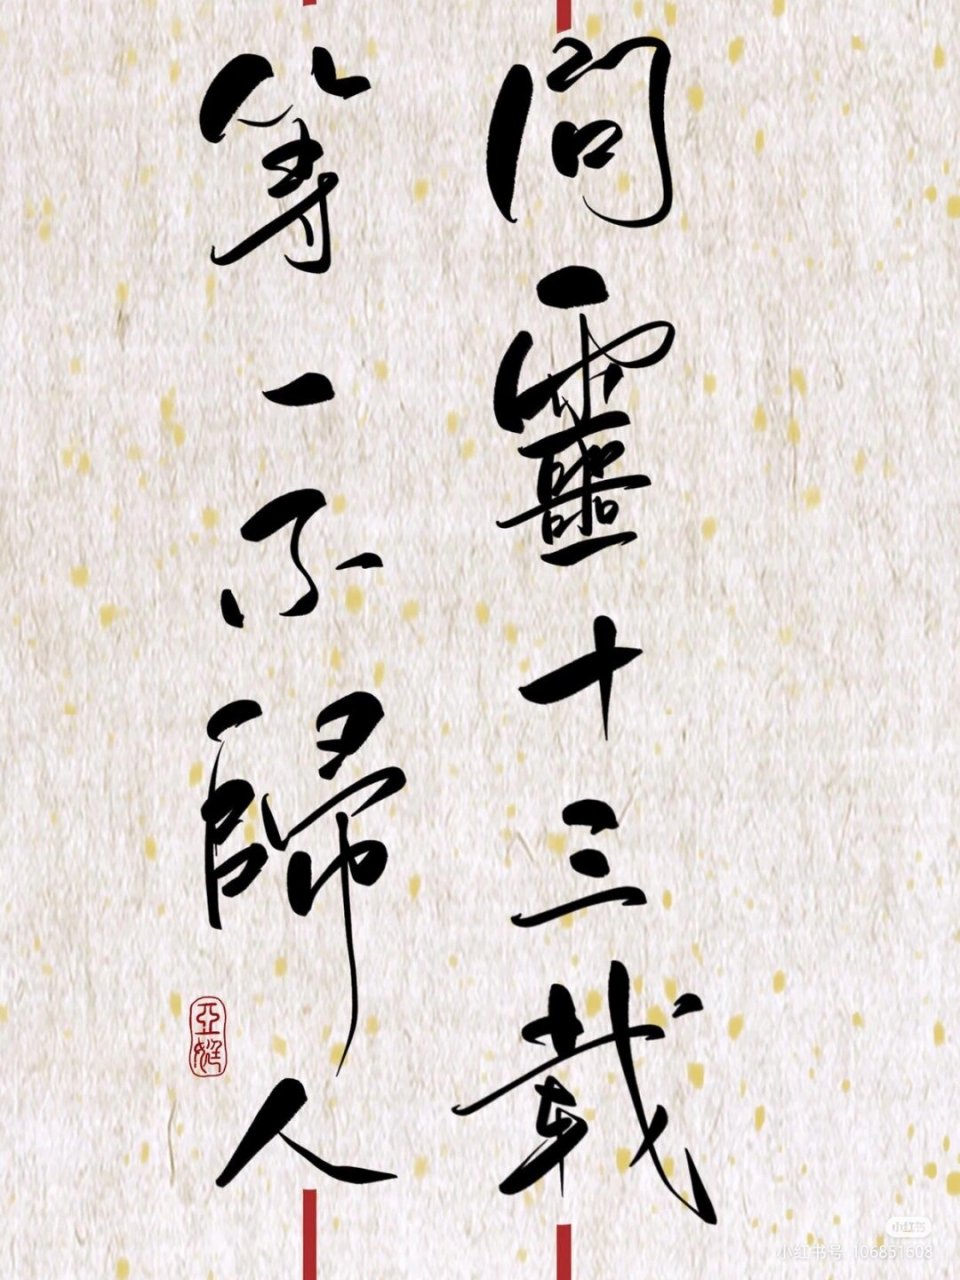 問靈十三載
等一不歸人
小红书
小红书号 106851608